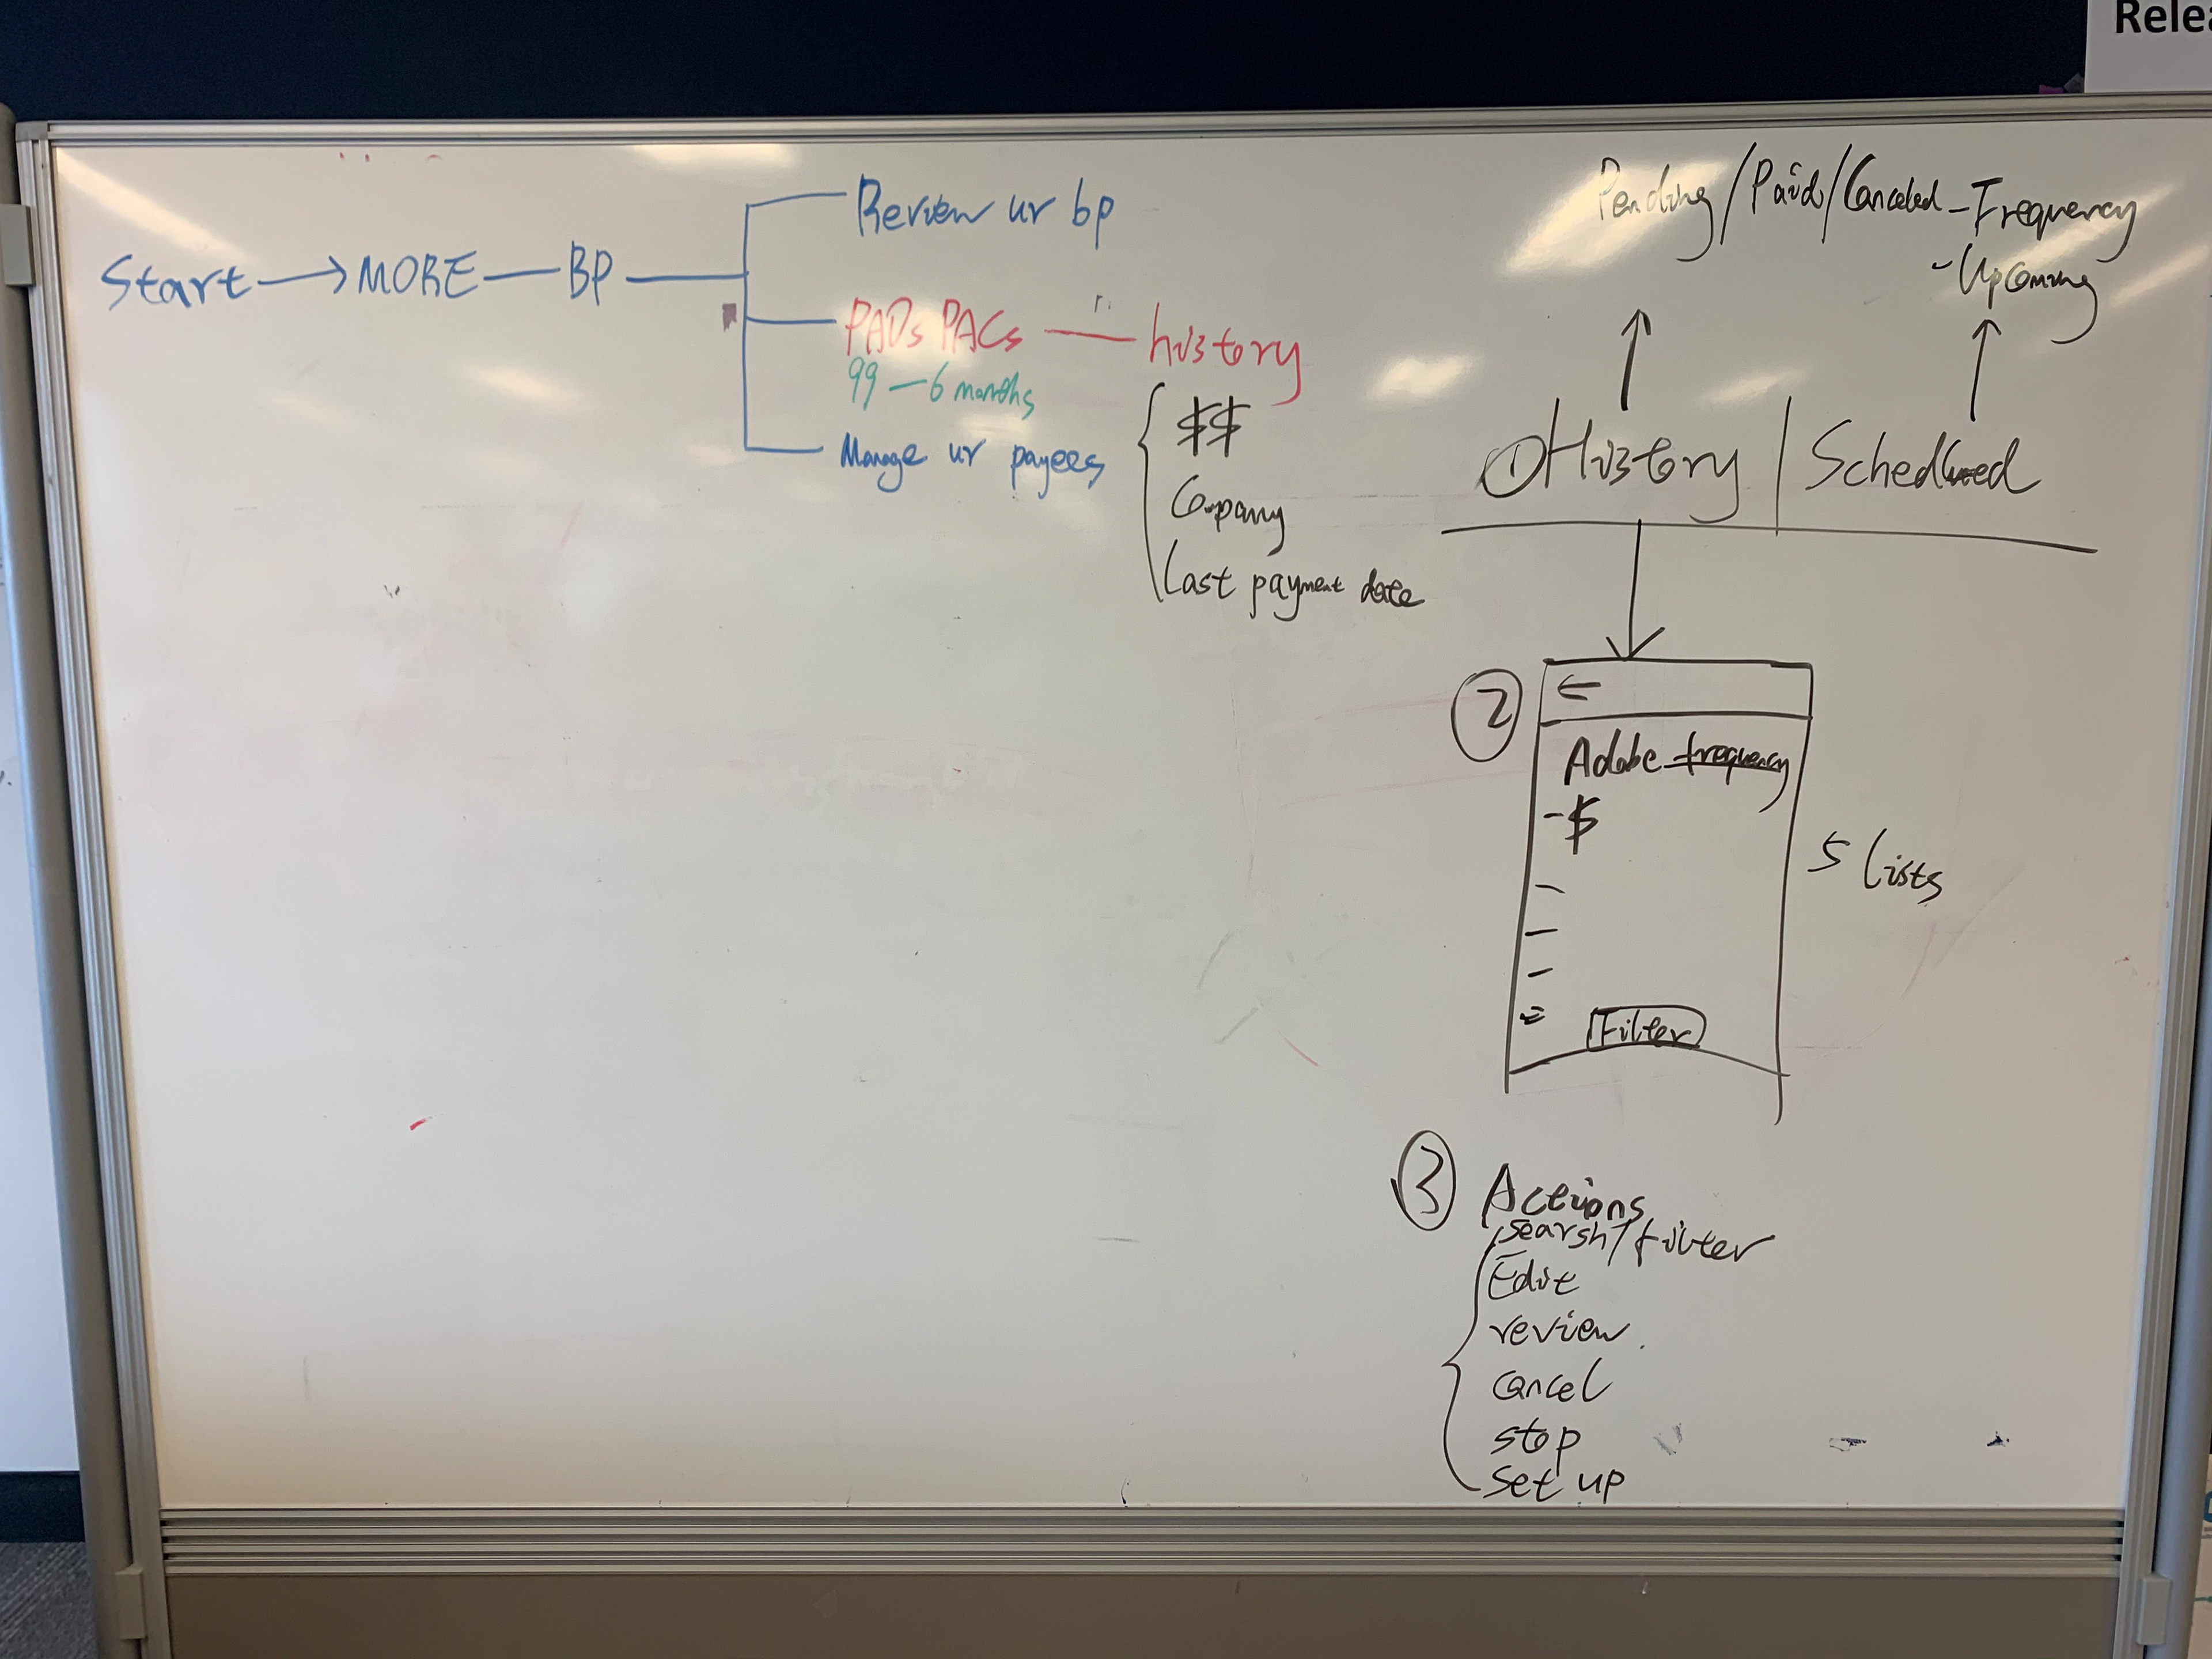 Relea
Start → MORE — BP
Review ur bp
PADs PACs — history
99 — 6 months
Manage ur payees
$$
Company
Last payment date
Pending / Paid / Canceled - Frequency
- Upcoming
① History | Scheduled
②
←
Adobe frequency
- $
5 lists
Filter
③ Actions
searsh/filter
Edit
review
cancel
stop
set up